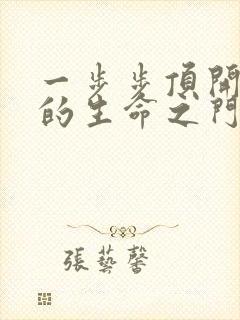 一步步頂開
的生命之門
張藝馨